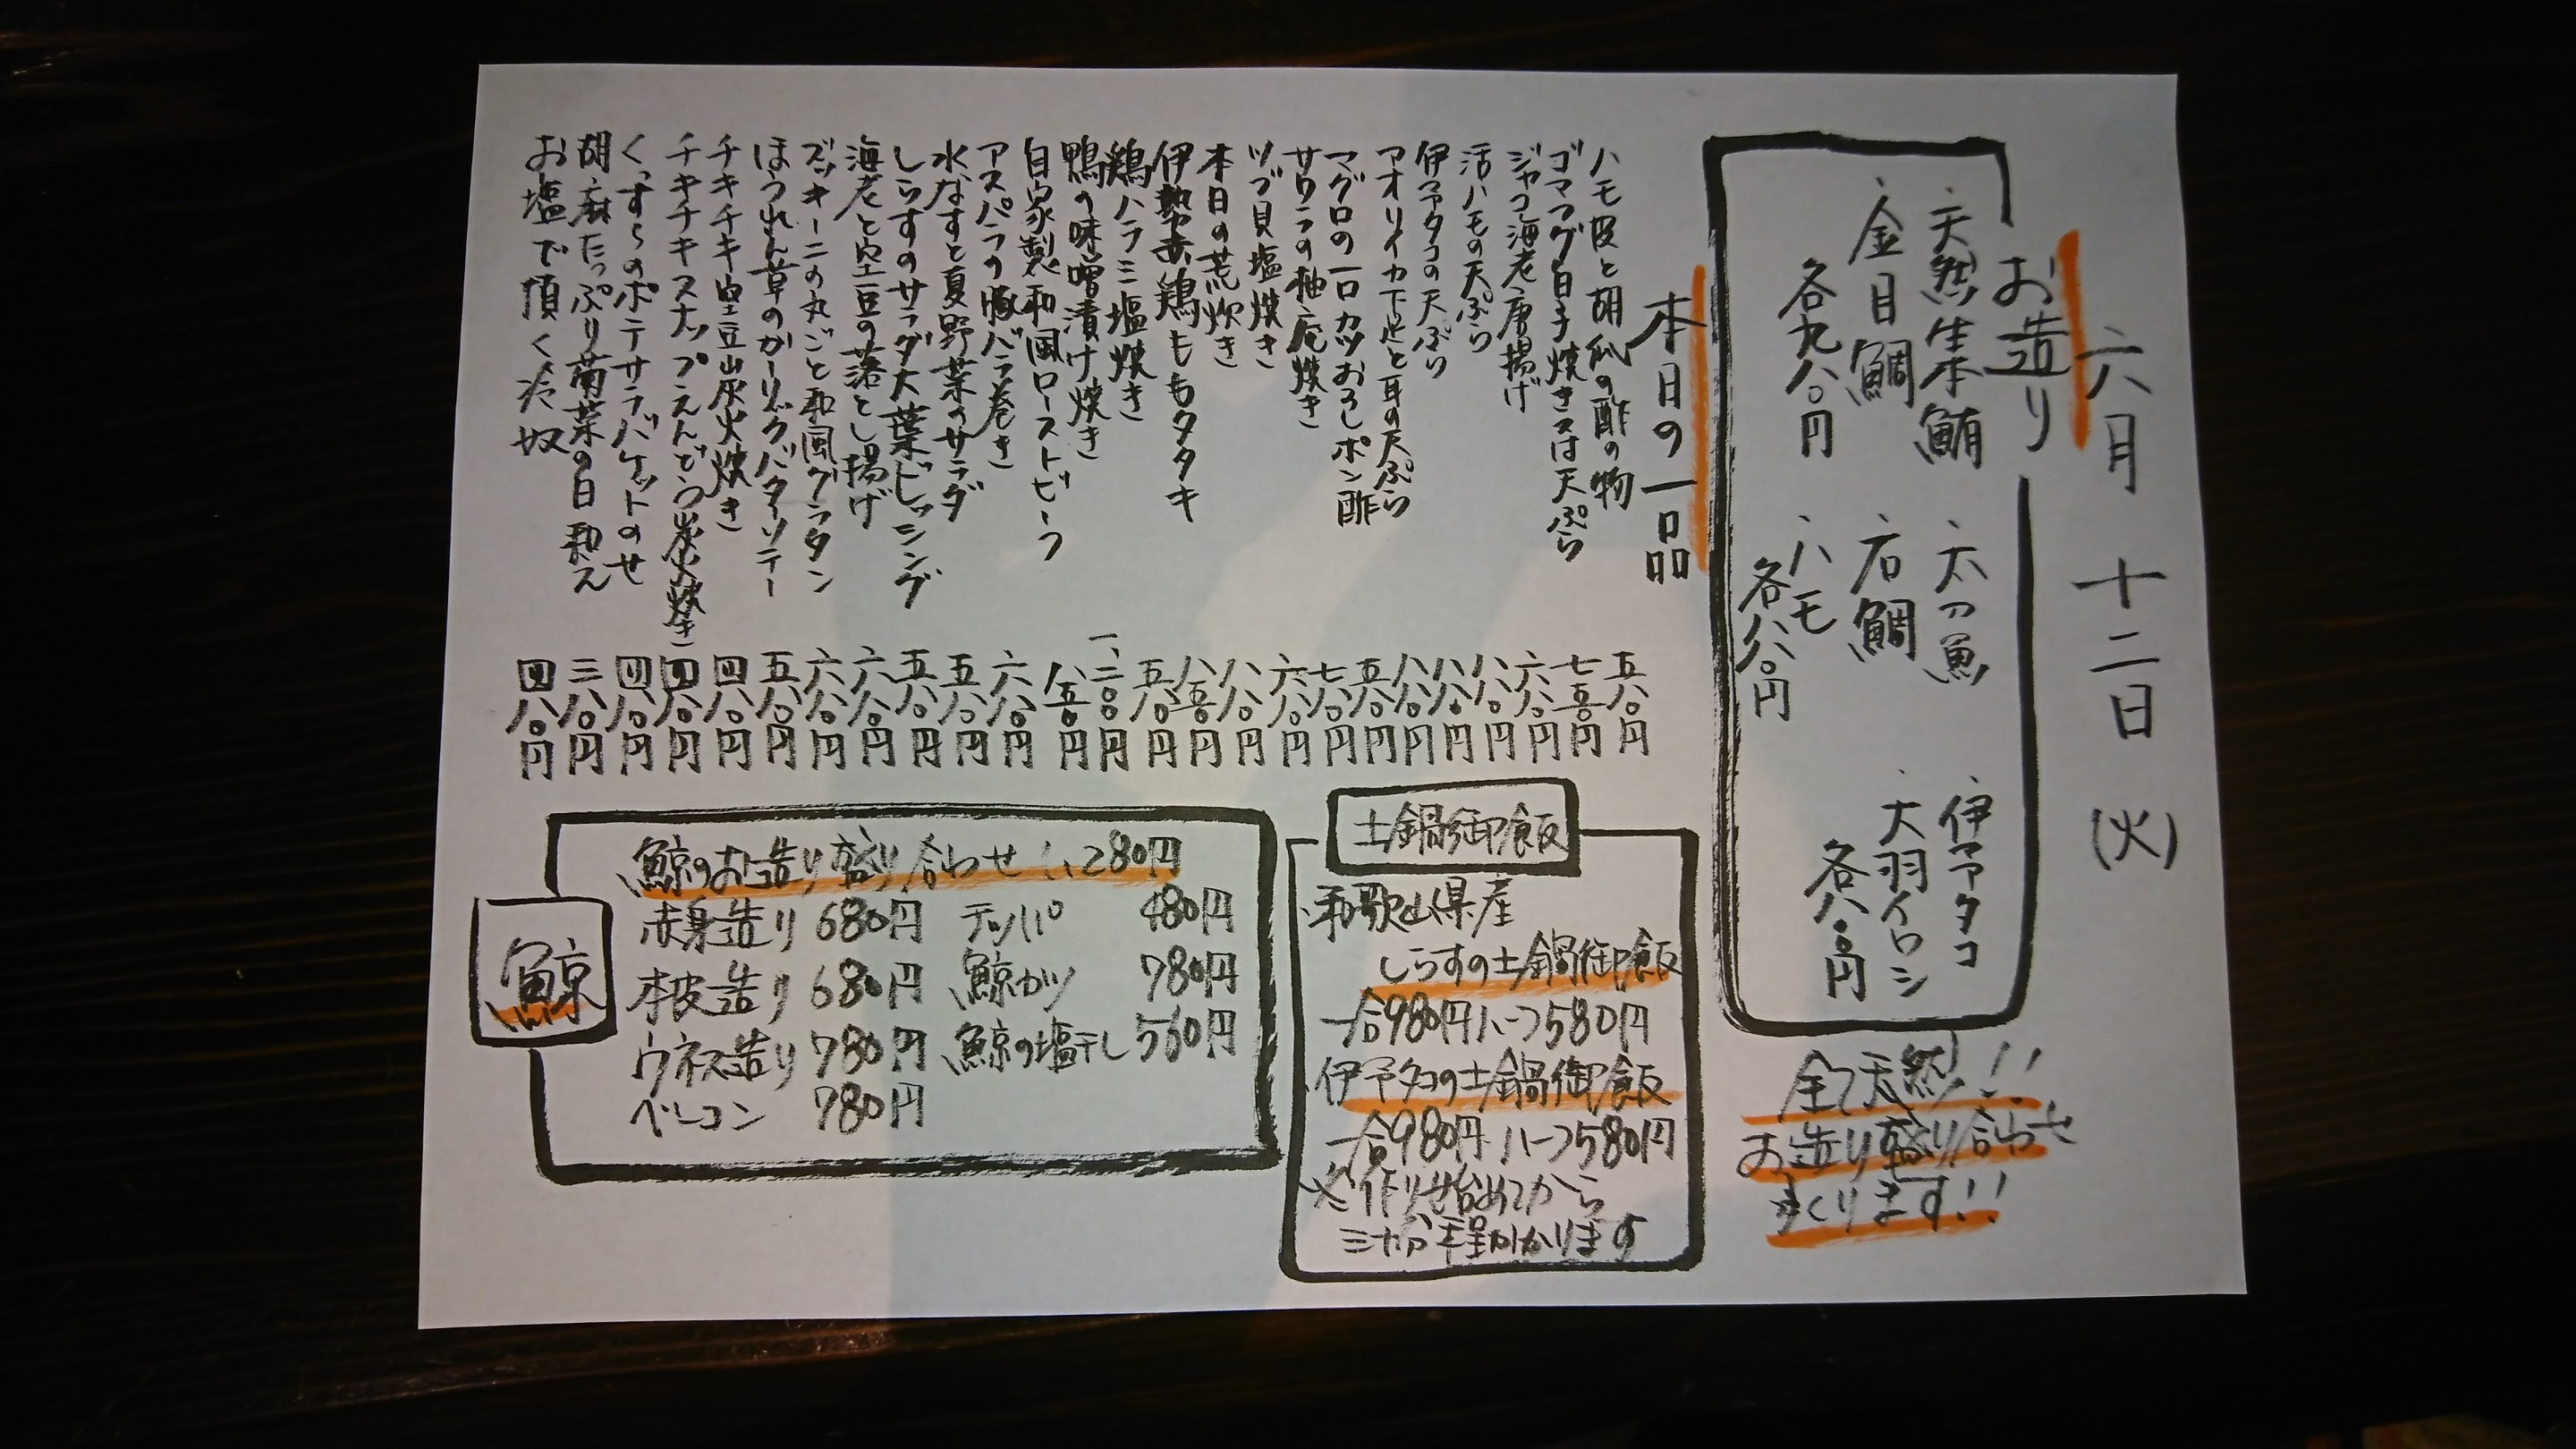 六月十二日(火)
お造り
、天然生本鮪
、金目鯛
各九八〇円
、太刀魚
、石鯛
、ハモ
各八八〇円
、伊予タコ
、大羽イワシ
各八〇〇円
全て天然!!
お造り盛り合わせ
承ります!!
本日の一品
ハモ皮と胡瓜の酢の物 五八〇円
ゴマフグ白子焼き又は天ぷら 七五〇円
ジャコ海老唐揚げ 六八〇円
活ハモの天ぷら 八八〇円
伊予タコの天ぷら 八八〇円
アオリイカ下足と耳の天ぷら 八八〇円
マグロの一口カツおろしポン酢 五八〇円
サワラの柚庵焼き 七八〇円
ツブ貝塩焼き 六八〇円
本日の荒炊き 八八〇円
伊勢赤鶏ももタタキ 八五〇円
鶏ハラミ塩焼き 五八〇円
鴨の味噌漬け焼き 一、二〇〇円
自家製和風ローストビーフ 八五〇円
アスパラの豚バラ巻き 六八〇円
水なすと夏野菜のサラダ 五八〇円
しらすのサラダ大葉ドレッシング 五八〇円
海老と空豆の落とし揚げ 六八〇円
ズッキーニの丸ごと和風グラタン 六八〇円
ほうれん草のガーリックバターソテー 五八〇円
チキチキ空豆炭火焼き 四八〇円
チキチキスナップえんどう炭火焼き 四八〇円
くずしのポテサラバケットのせ 四八〇円
胡麻たっぷり菊菜の白和え 三八〇円
お塩で頂く冷奴 四八〇円
土鍋御飯
、和歌山県産
しらすの土鍋御飯
一合980円ハーフ580円
、伊予タコの土鍋御飯
一合980円ハーフ580円
※作り始めてから
三十分程かかります
鯨
鯨のお造り盛り合わせ 1,280円
赤身造り 680円 テッパ 480円
本皮造り 680円 鯨カツ 780円
ウネス造り 780円 鯨の塩干し 560円
ベーコン 780円